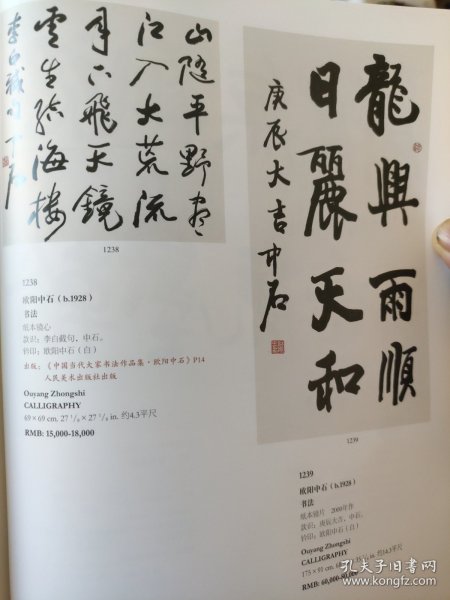 山隨平野尽
江入大荒流
月下飛天鏡
雲生結海樓
李白截句中石
1238
龍興雨順
日麗天和
庚辰大吉中石
1239
1238
欧阳中石（b.1928）
书法
纸本镜心
款识：李白截句，中石。
钤印：欧阳中石（白）
出版：《中国当代大家书法作品集·欧阳中石》P14
人民美术出版社出版
Ouyang Zhongshi
CALLIGRAPHY
69×69 cm. 27 1/8×27 1/8 in. 约4.3平尺
RMB: 15,000-18,000
1239
欧阳中石（b.1928）
书法
纸本镜片 2000年作
款识：庚辰大吉，中石。
钤印：欧阳中石（白）
Ouyang Zhongshi
CALLIGRAPHY
175×91 cm. in. 约14.3平尺
RMB: 60,000-
孔夫子旧书网
www.kongfz.com